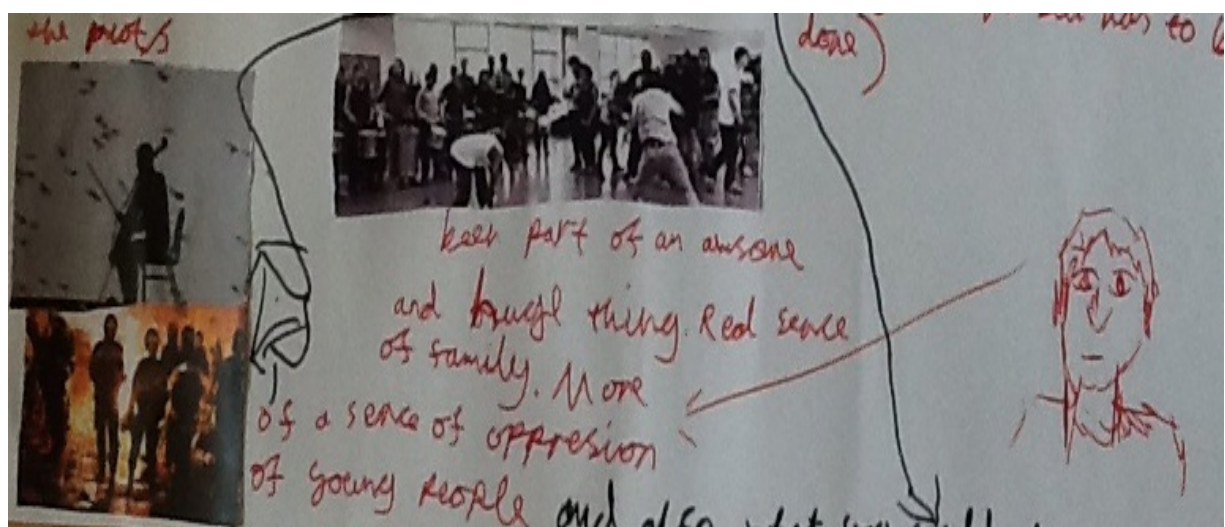 the
done)
has to
been part of an awsone
and hugh thing. Red sence
of family. More
of a sence of oppresion
of young people and also what